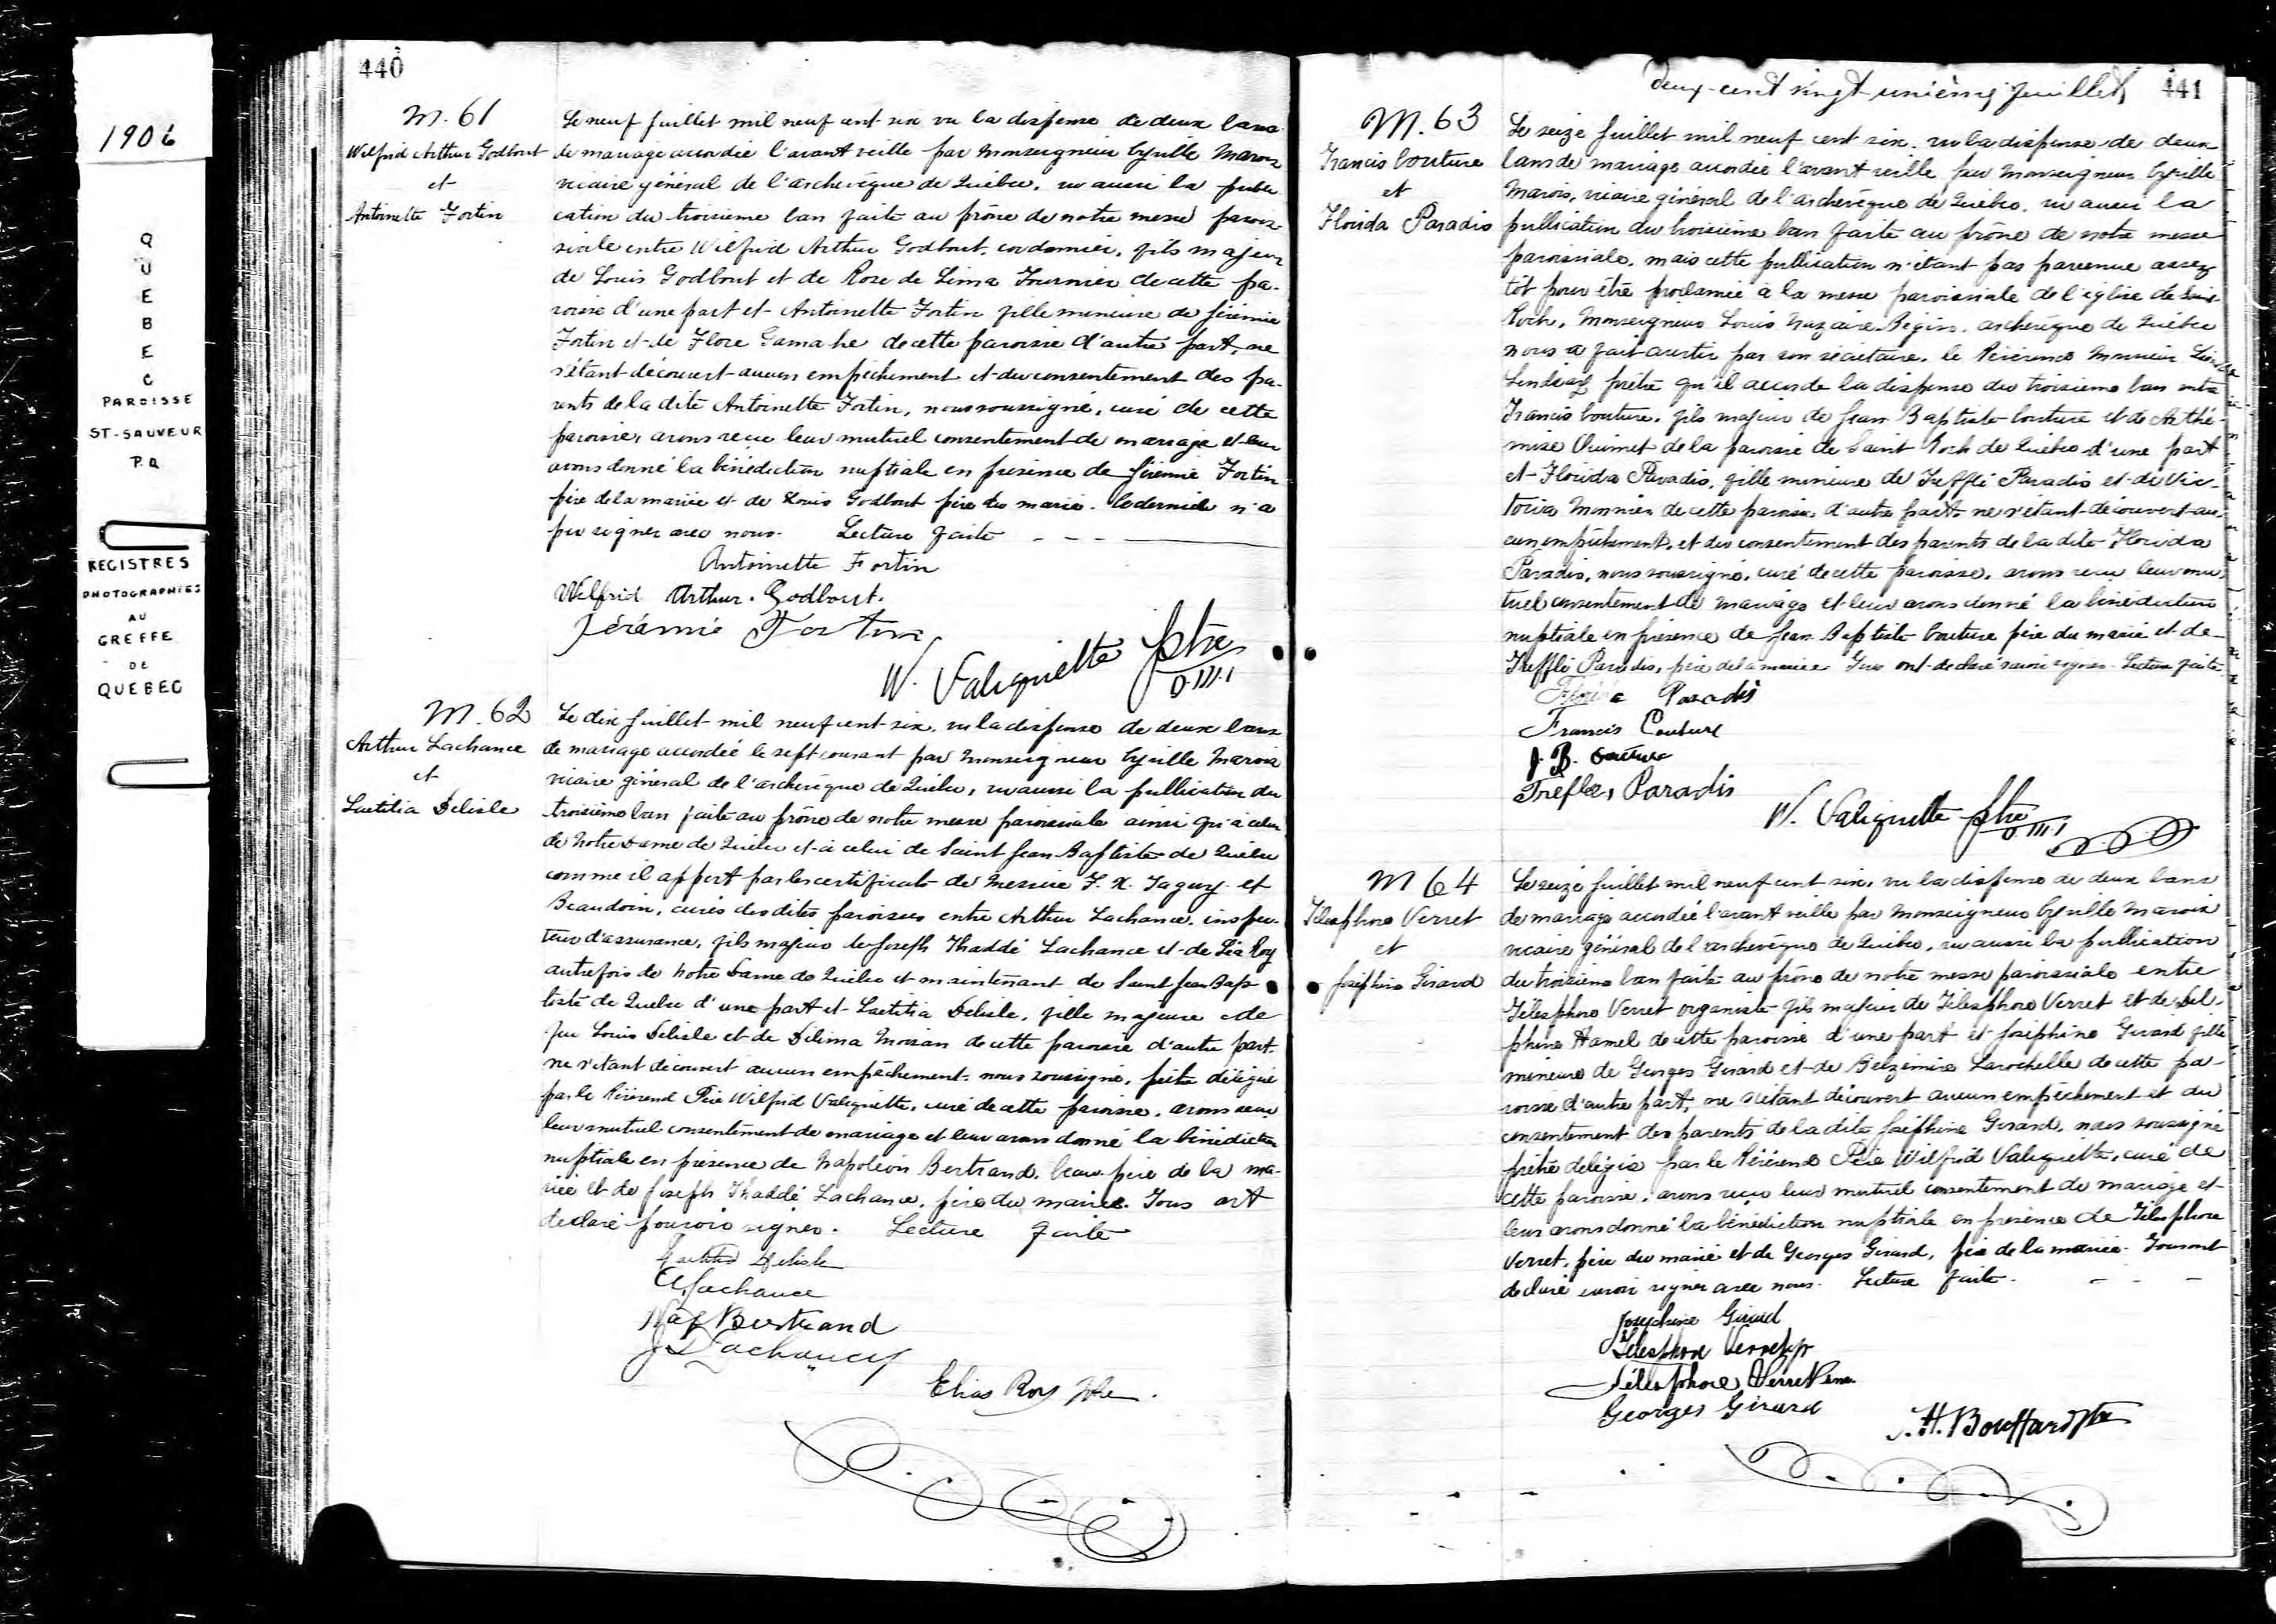 1906
QUEBEC
PAROISSE
ST-SAUVEUR
P.Q
REGISTRES
PHOTOGRAPHIÉS
AU
GREFFE
DE
QUEBEC
440
M. 61
Wilfrid Arthur Godbout
et
Antoinette Fortin
Le neuf juillet mil neuf cent six vu la dispense de deux bans
de mariage accordée l'avant veille par Monseigneur Cyrille Marois
vicaire général de l'archevêque de Québec, vu aussi la publi
cation du troisième ban faite au prône de notre messe parois
siale entre Wilfrid Arthur Godbout, cordonnier, fils majeur
de Louis Godbout et de Rose de Lima Fournier de cette pa-
roisse d'une part et Antoinette Fortin fille mineure de Jérémie
Fortin et de Flore Gamache de cette paroisse d'autre part, ne
s'étant découvert aucun empêchement et du consentement des pa-
rents de la dite Antoinette Fortin, nous soussigné, curé de cette
paroisse, avons reçu leur mutuel consentement de mariage et leur
avons donné la bénédiction nuptiale en présence de Jérémie Fortin
père de la mariée et de Louis Godbout père du marié. Ce dernier n'a
pu signer avec nous. Lecture faite
Antoinette Fortin
Wilfrid Arthur. Godbout.
Jérémie Fortin
W. Valiquette ptre
O.M.I
M. 62
Arthur Lachance
et
Laetitia Delisle
Le dix juillet mil neuf cent six, vu la dispense de deux bans
de mariage accordée le sept courant par Monseigneur Cyrille Marois
vicaire général de l'archevêque de Québec, vu aussi la publication du
troisième ban faite au prône de notre messe paroissiale ainsi qu'à celui
de Notre Dame de Québec et à celui de Saint Jean Baptiste de Québec
comme il appert par les certificats de Messire F. X. Faguy et
Beaudoin, curés des dites paroisses entre Arthur Lachance, inspec-
teur d'assurance, fils majeur de Joseph Thaddé Lachance et de Léa Roy
autrefois de Notre Dame de Québec et maintenant de Saint Jean Bap
tiste de Québec d'une part et Laetitia Delisle, fille majeure de
feu Louis Delisle et de Délima Moisan de cette paroisse d'autre part.
ne s'étant découvert aucun empêchement, nous soussigné, prêtre délégué
par le Révérend Père Wilfrid Valiquette, curé de cette paroisse, avons reçu
leur mutuel consentement de mariage et leur avons donné la bénédiction
nuptiale en présence de Napoléon Bertrand, beau-père de la ma-
riée et de Joseph Thaddé Lachance, père du marié. Tous ont
déclaré pouvoir signer. Lecture faite
Laetitia Delisle
A. Lachance
Nap Bertrand
J Lachance
Elias Roy Ptre.
Deux-cent vingt unième feuillet 441
M. 63
Francis Couture
et
Florida Paradis
Le seize juillet mil neuf cent six. vu la dispense de deux
bans de mariage accordée l'avant veille par Monseigneur Cyrille
Marois, vicaire général de l'archevêque de Québec, vu aussi la
publication du troisième ban faite au prône de notre messe
paroissiale, mais cette publication n'étant pas parvenue assez
tôt pour être proclamée à la messe paroissiale de l'église de Saint
Roch, Monseigneur Louis Nazaire Bégin, archevêque de Québec
nous a fait avertir par son secrétaire, le Révérend Monsieur
Lindsay prêtre qu'il accorde la dispense du troisième ban entre
Francis Couture, fils majeur de Jean Baptiste Couture et de Arthé-
mise Ouimet de la paroisse de Saint Roch de Québec d'une part
et Florida Paradis, fille mineure de Trefflé Paradis et de Vic-
toria Monnier de cette paroisse d'autre part, ne s'étant découvert au-
cun empêchement, et du consentement des parents de la dite Florida
Paradis, nous soussigné, curé de cette paroisse, avons reçu leur mu-
tuel consentement de mariage et leur avons donné la bénédiction
nuptiale en présence de Jean Baptiste Couture père du marié et de
Trefflé Paradis, père de la mariée Tous ont déclaré savoir signer. Lecture faite
Paradis
Francis Couture
J. B. Couture
Paradis
W. Valiquette ptre
O.M.I
M 64
Télesphore Verret
et
Joséphine Girard
Le seize juillet mil neuf cent six, vu la dispense de deux bans
de mariage accordée l'avant veille par Monseigneur Cyrille Marois
vicaire général de l'archevêque de Québec, vu aussi la publication
du troisième ban faite au prône de notre messe paroissiale entre
Télesphore Verret organiste fils majeur de Télesphore Verret et de Del-
phine Hamel de cette paroisse d'une part et Joséphine Girard fille
mineure de Georges Girard et de Belzémire Larochelle de cette pa-
roisse d'autre part, ne s'étant découvert aucun empêchement et du
consentement des parents de la dite Joséphine Girard, nous soussigné
prêtre délégué par le Révérend Père Wilfrid Valiquette, curé de
cette paroisse, avons reçu leur mutuel consentement de mariage et
leur avons donné la bénédiction nuptiale en présence de Télesphore
Verret, père du marié et de Georges Girard, père de la mariée. Tous ont
déclaré savoir signer avec nous. Lecture faite.
Josephine Girard
Télesphore Verret jr
Télesphore Verret Père
Georges Girard
J. H. Bouffard Ptre